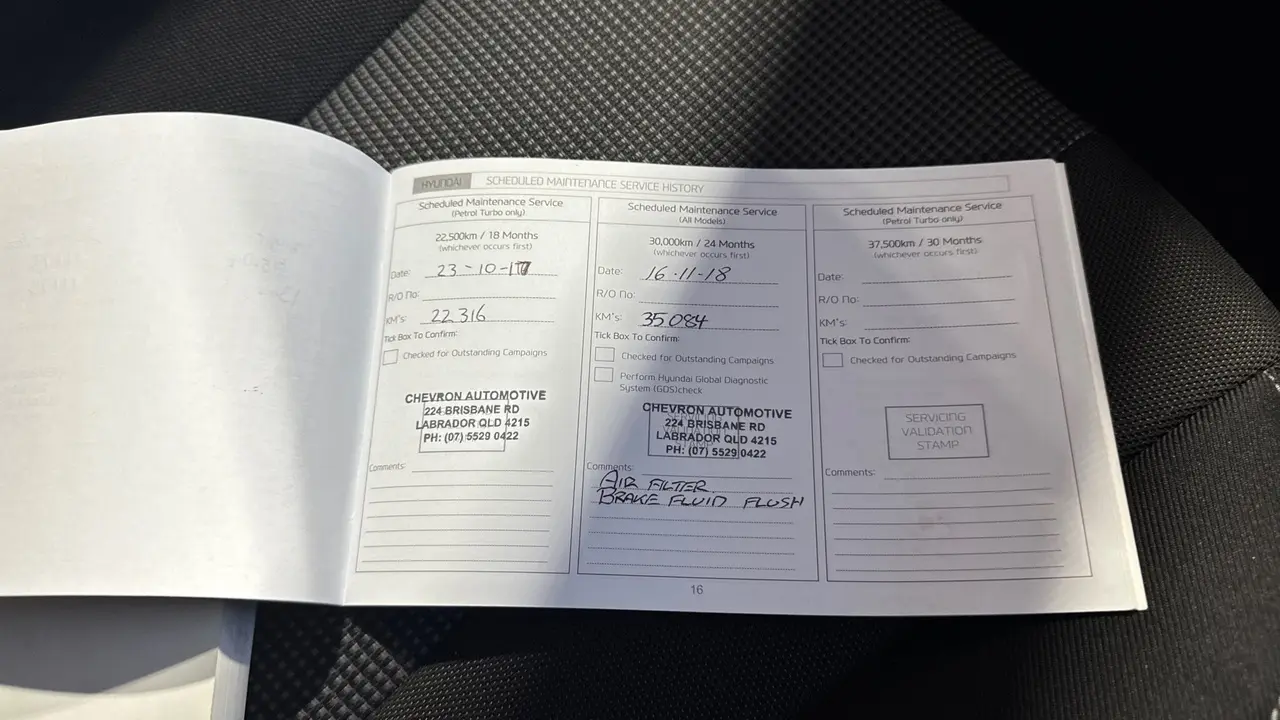 HYUNDAI SCHEDULED MAINTENANCE SERVICE HISTORY
Scheduled Maintenance Service
(Petrol Turbo only)
22,500km / 18 Months
(whichever occurs first)
Date: 23-10-17
R/O No:
KM's: 22 316
Tick Box To Confirm:
Checked for Outstanding Campaigns
CHEVRON AUTOMOTIVE
224 BRISBANE RD
LABRADOR QLD 4215
PH: (07) 5529 0422
Comments:
Scheduled Maintenance Service
(All Models)
30,000km / 24 Months
(whichever occurs first)
Date: 16-11-18
R/O No:
KM's: 35084
Tick Box To Confirm:
Checked for Outstanding Campaigns
Perform Hyundai Global Diagnostic
System (GDS)check
SERVICING
VALIDATION
STAMP
CHEVRON AUTOMOTIVE
224 BRISBANE RD
LABRADOR QLD 4215
PH: (07) 5529 0422
Comments:
AIR FILTER
BRAKE FLUID FLUSH
Scheduled Maintenance Service
(Petrol Turbo only)
37,500km / 30 Months
(whichever occurs first)
Date:
R/O No:
KM's:
Tick Box To Confirm:
Checked for Outstanding Campaigns
SERVICING
VALIDATION
STAMP
Comments:
16